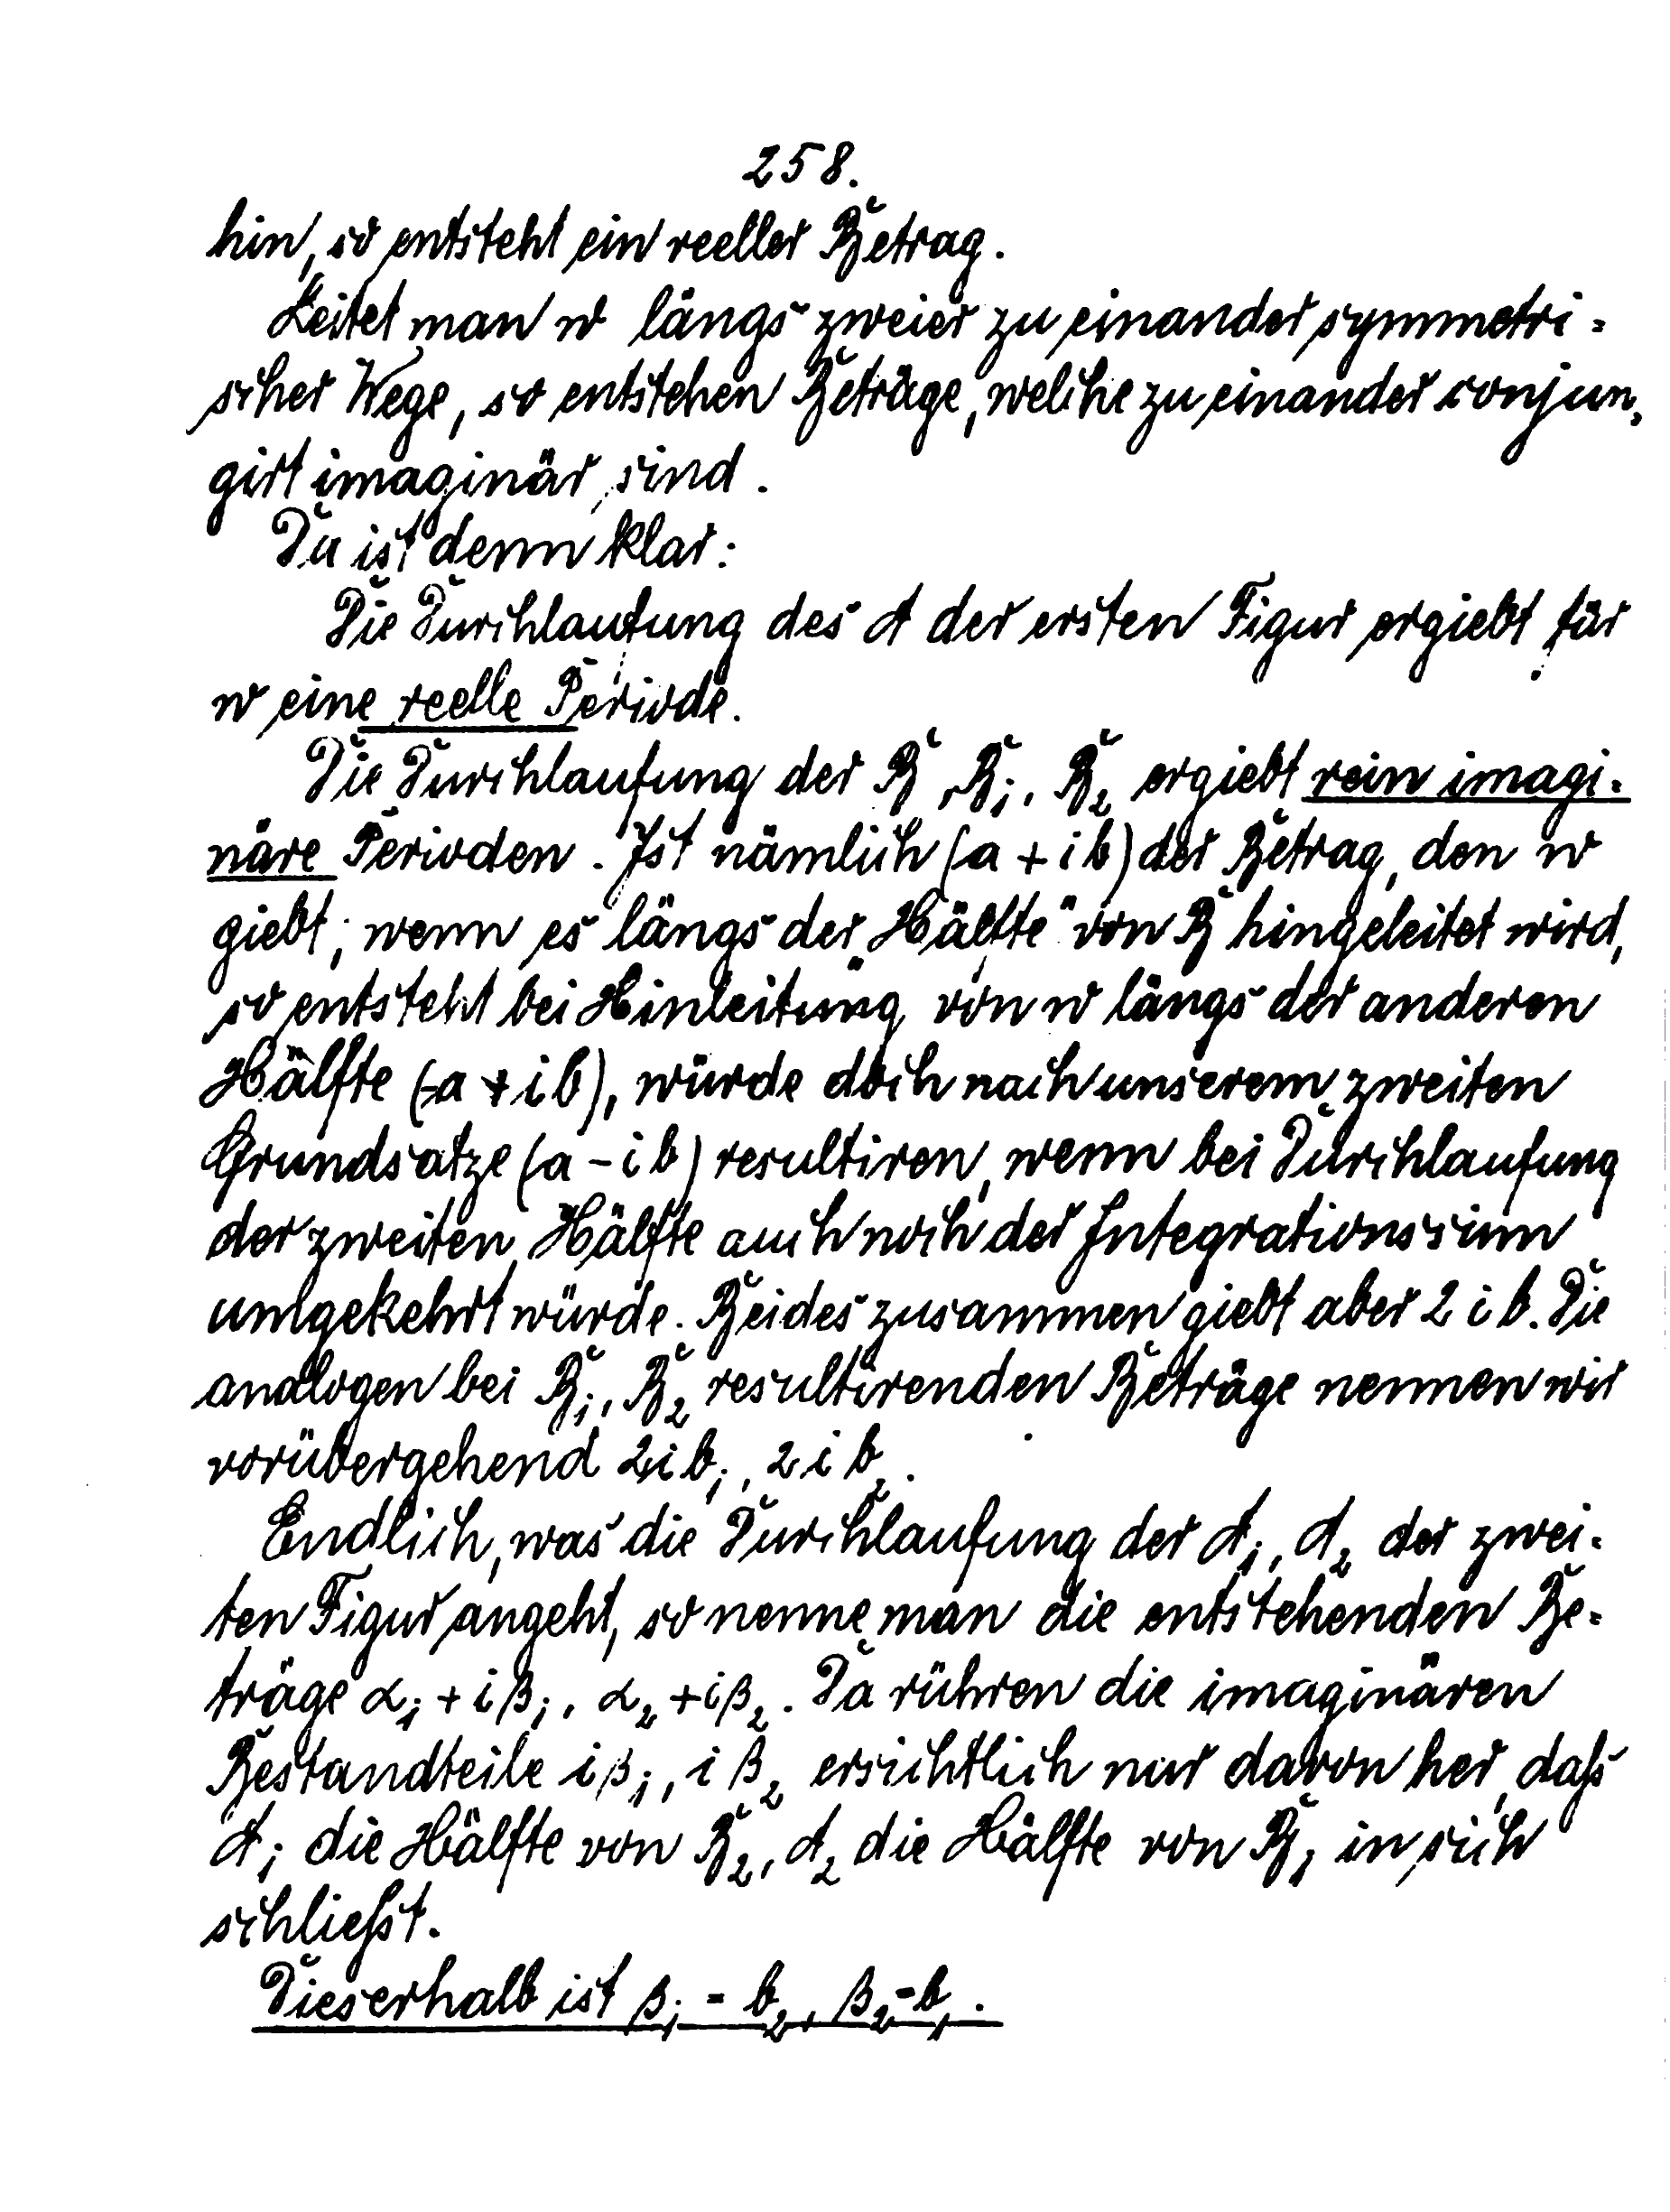 258.
hin, so entsteht ein reeller Betrag.
Leitet man w längs zweier zu einander symmetri=
scher Wege, so entstehen Beträge, welche zu einander conjun=
girt imaginär sind.
Da ist denn klar:
Die Durchlaufung des A der ersten Figur ergiebt für
w eine reelle Periode.
Die Durchlaufung der B, B₁, B₂ ergiebt rein imagi=
näre Perioden. Ist nämlich (a + ib) der Betrag, den w
giebt, wenn es längs der „Hälfte" von B hingeleitet wird,
so entsteht bei Hinleitung von w längs der anderen
Hälfte (-a + ib), würde doch nach unserem zweiten
Grundsatze (a - ib) resultiren, wenn bei Durchlaufung
der zweiten Hälfte auch noch der Integrationssinn
umgekehrt würde. Beides zusammen giebt aber 2 i b. Die
analogen bei B₁, B₂ resultirenden Beträge nennen wir
vorübergehend 2 i b₁, 2 i b₂.
Endlich, was die Durchlaufung der A₁, A₂ der zwei=
ten Figur angeht, so nenne man die entstehenden Be=
träge α₁ + iβ₁, α₂ + iβ₂. Da rühren die imaginären
Bestandteile iβ₁, iβ₂ ersichtlich nur davon her, daß
A₁ die Hälfte von B₂, A₂ die Hälfte von B₁ in sich
schließt.
Dieserhalb ist β₁ = b₂, β₂ = b₁.